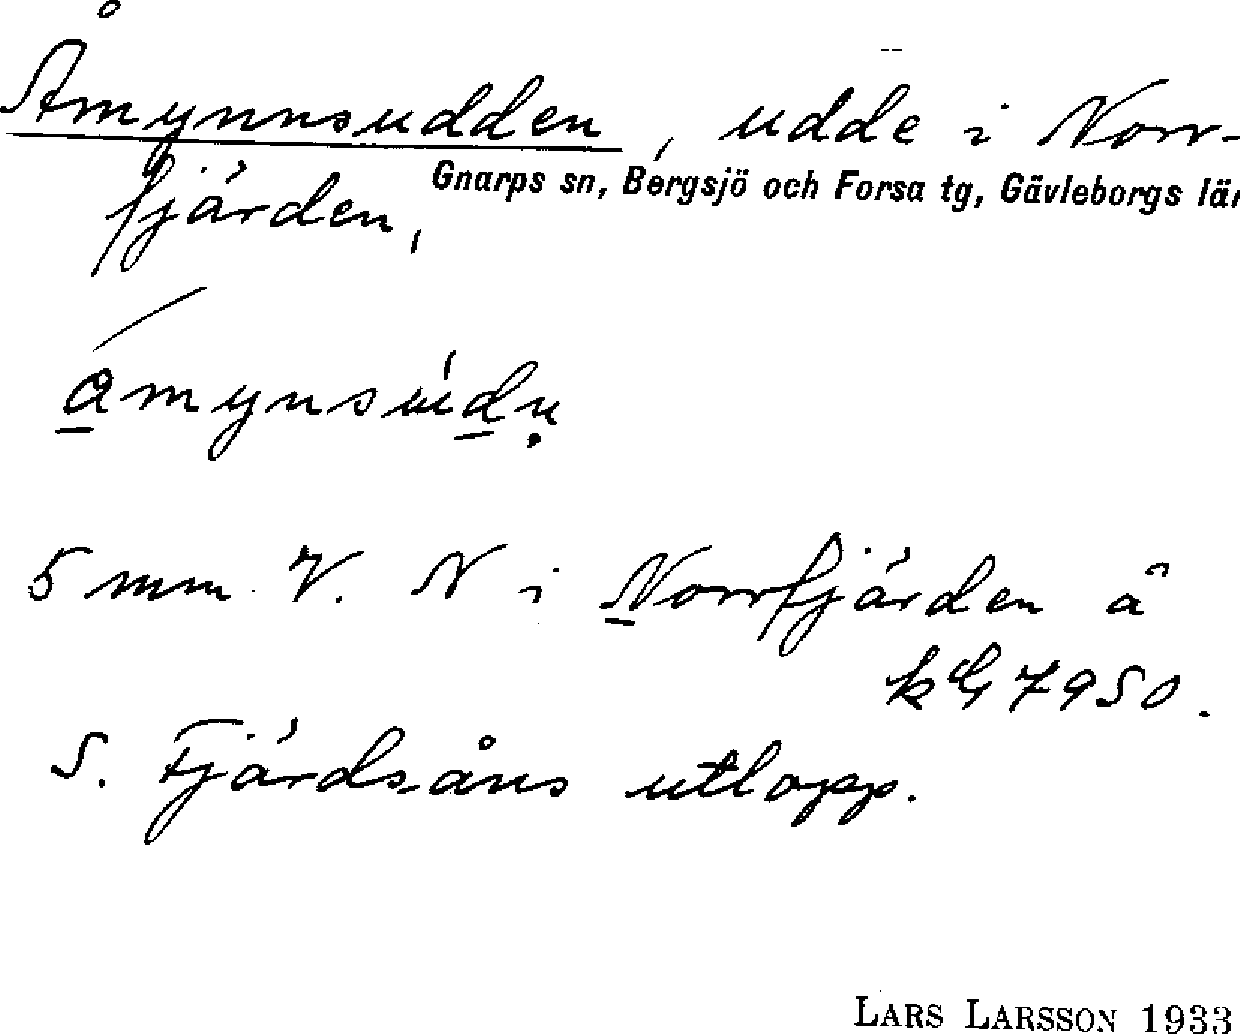 Åmynnsudden, udde i Norr-
fjärden,
Gnarps sn, Bergsjö och Forsa tg, Gävleborgs län
åmynsúdn̥
5 mm V. N i Norrfjärden å
kG 7950.
S. Fjärdsåns utlopp.
LARS LARSSON 1933